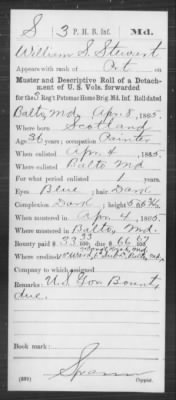 S 3 P. H. B. Inf. Md.
William S. Stewart
Appears with rank of Pvt on
Muster and Descriptive Roll of a Detach-
ment of U. S. Vols. forwarded
for the 3 Reg't Potomac Home Brig. Md. Inf. Roll dated
Balto, Md., Apr. 8, 1865.
Where born Scotland
Age 36 years; occupation Painter
When enlisted Apr. 4, 1865.
Where enlisted Balto Md
For what period enlisted 1 years.
Eyes Blue; hair Dark
Complexion Dark; height 5 ft. in.
When mustered in Apr. 4, 1865.
Where mustered in Balto, Md.
Bounty paid $ 33 33/100; due $ 66 67/100
Where credited Ward, Balto, Md.
Company to which assigned
Remarks: U.S. Gov Bounty
due.
Book mark:
Spamer
(339) Copyist.